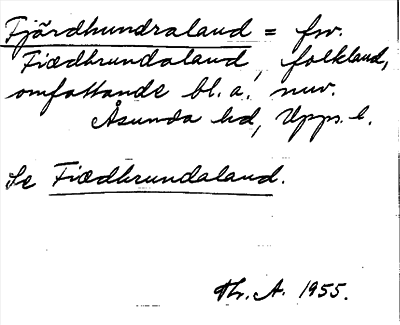 Fjärdhundraland = fsv.
Fiædhrundaland, folkland,
omfattande bl.a. nuv.
Åsunda hd, Upps. l.
Se Fiædhrundaland.
Th. A. 1955.